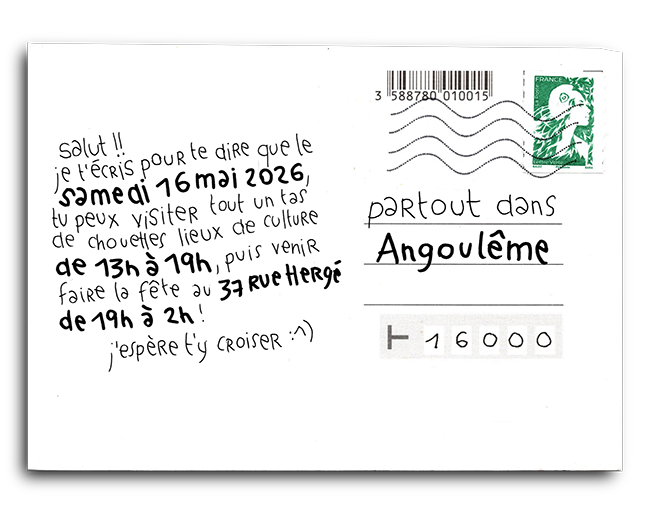 salut !!
je t'écris pour te dire que le
samedi 16 mai 2026,
tu peux visiter tout un tas
de chouettes lieux de culture
de 13h à 19h, puis venir
faire la fête au 37 rue Hergé
de 19h à 2h !
j'espère t'y croiser :1)
3 588780 010015
FRANCE
partout dans
Angoulême
16000